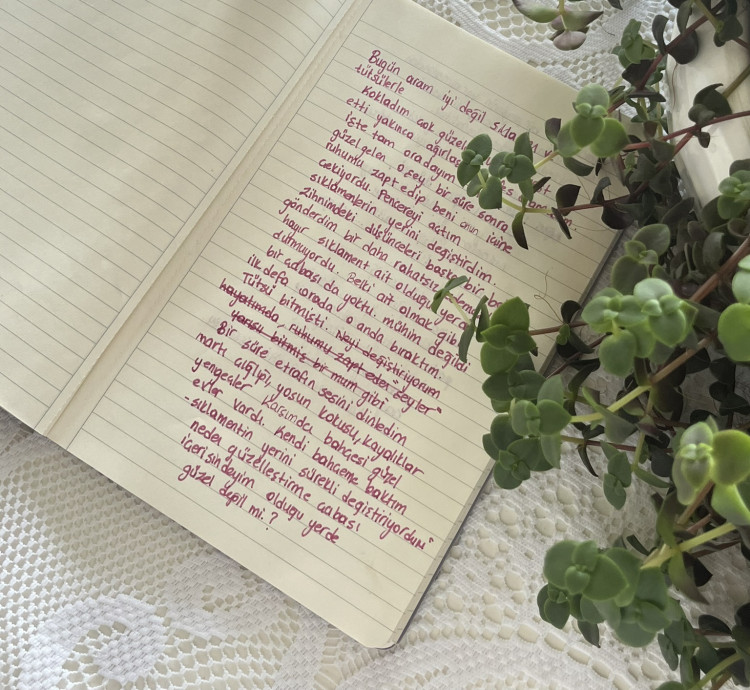 Bugün aram iyi değil
tütsülerle
Kokladım çok güzel
etti yakınca ağırlaş
işte tam oradayım
güzel gelen o şey, bir süre sonra
ruhumu zapt edip beni onun içine
çekiyordu. Pencereyi açtım
sıklamenlerin yerini değiştirdim.
Zihnimdeki düşünceleri başka bir
gönderdim bir daha rahatsız
hayır sıklament ait olduğu yerde
durmuyordu. Belki ait olmak gibi
bir çabası da yoktu. mühim değildi
ilk defa orada o anda bıraktım.
Tütsü bitmişti. Neyi değiştiriyorum
hayatımda, ruhumu zapt eden "şeyler"
yarısı bitmiş bir mum gibi
Bir süre etrafın sesini dinledim
martı çığlığı, yosun kokusu, kayalıklar
yengeçler Karşımda bahçesi güzel
evler vardı. Kendi bahçeme baktım
-sıklamentin yerini sürekli değiştiriyordum"
neden güzelleştirme çabası
içerisindeyim olduğu yerde
güzel değil mi?